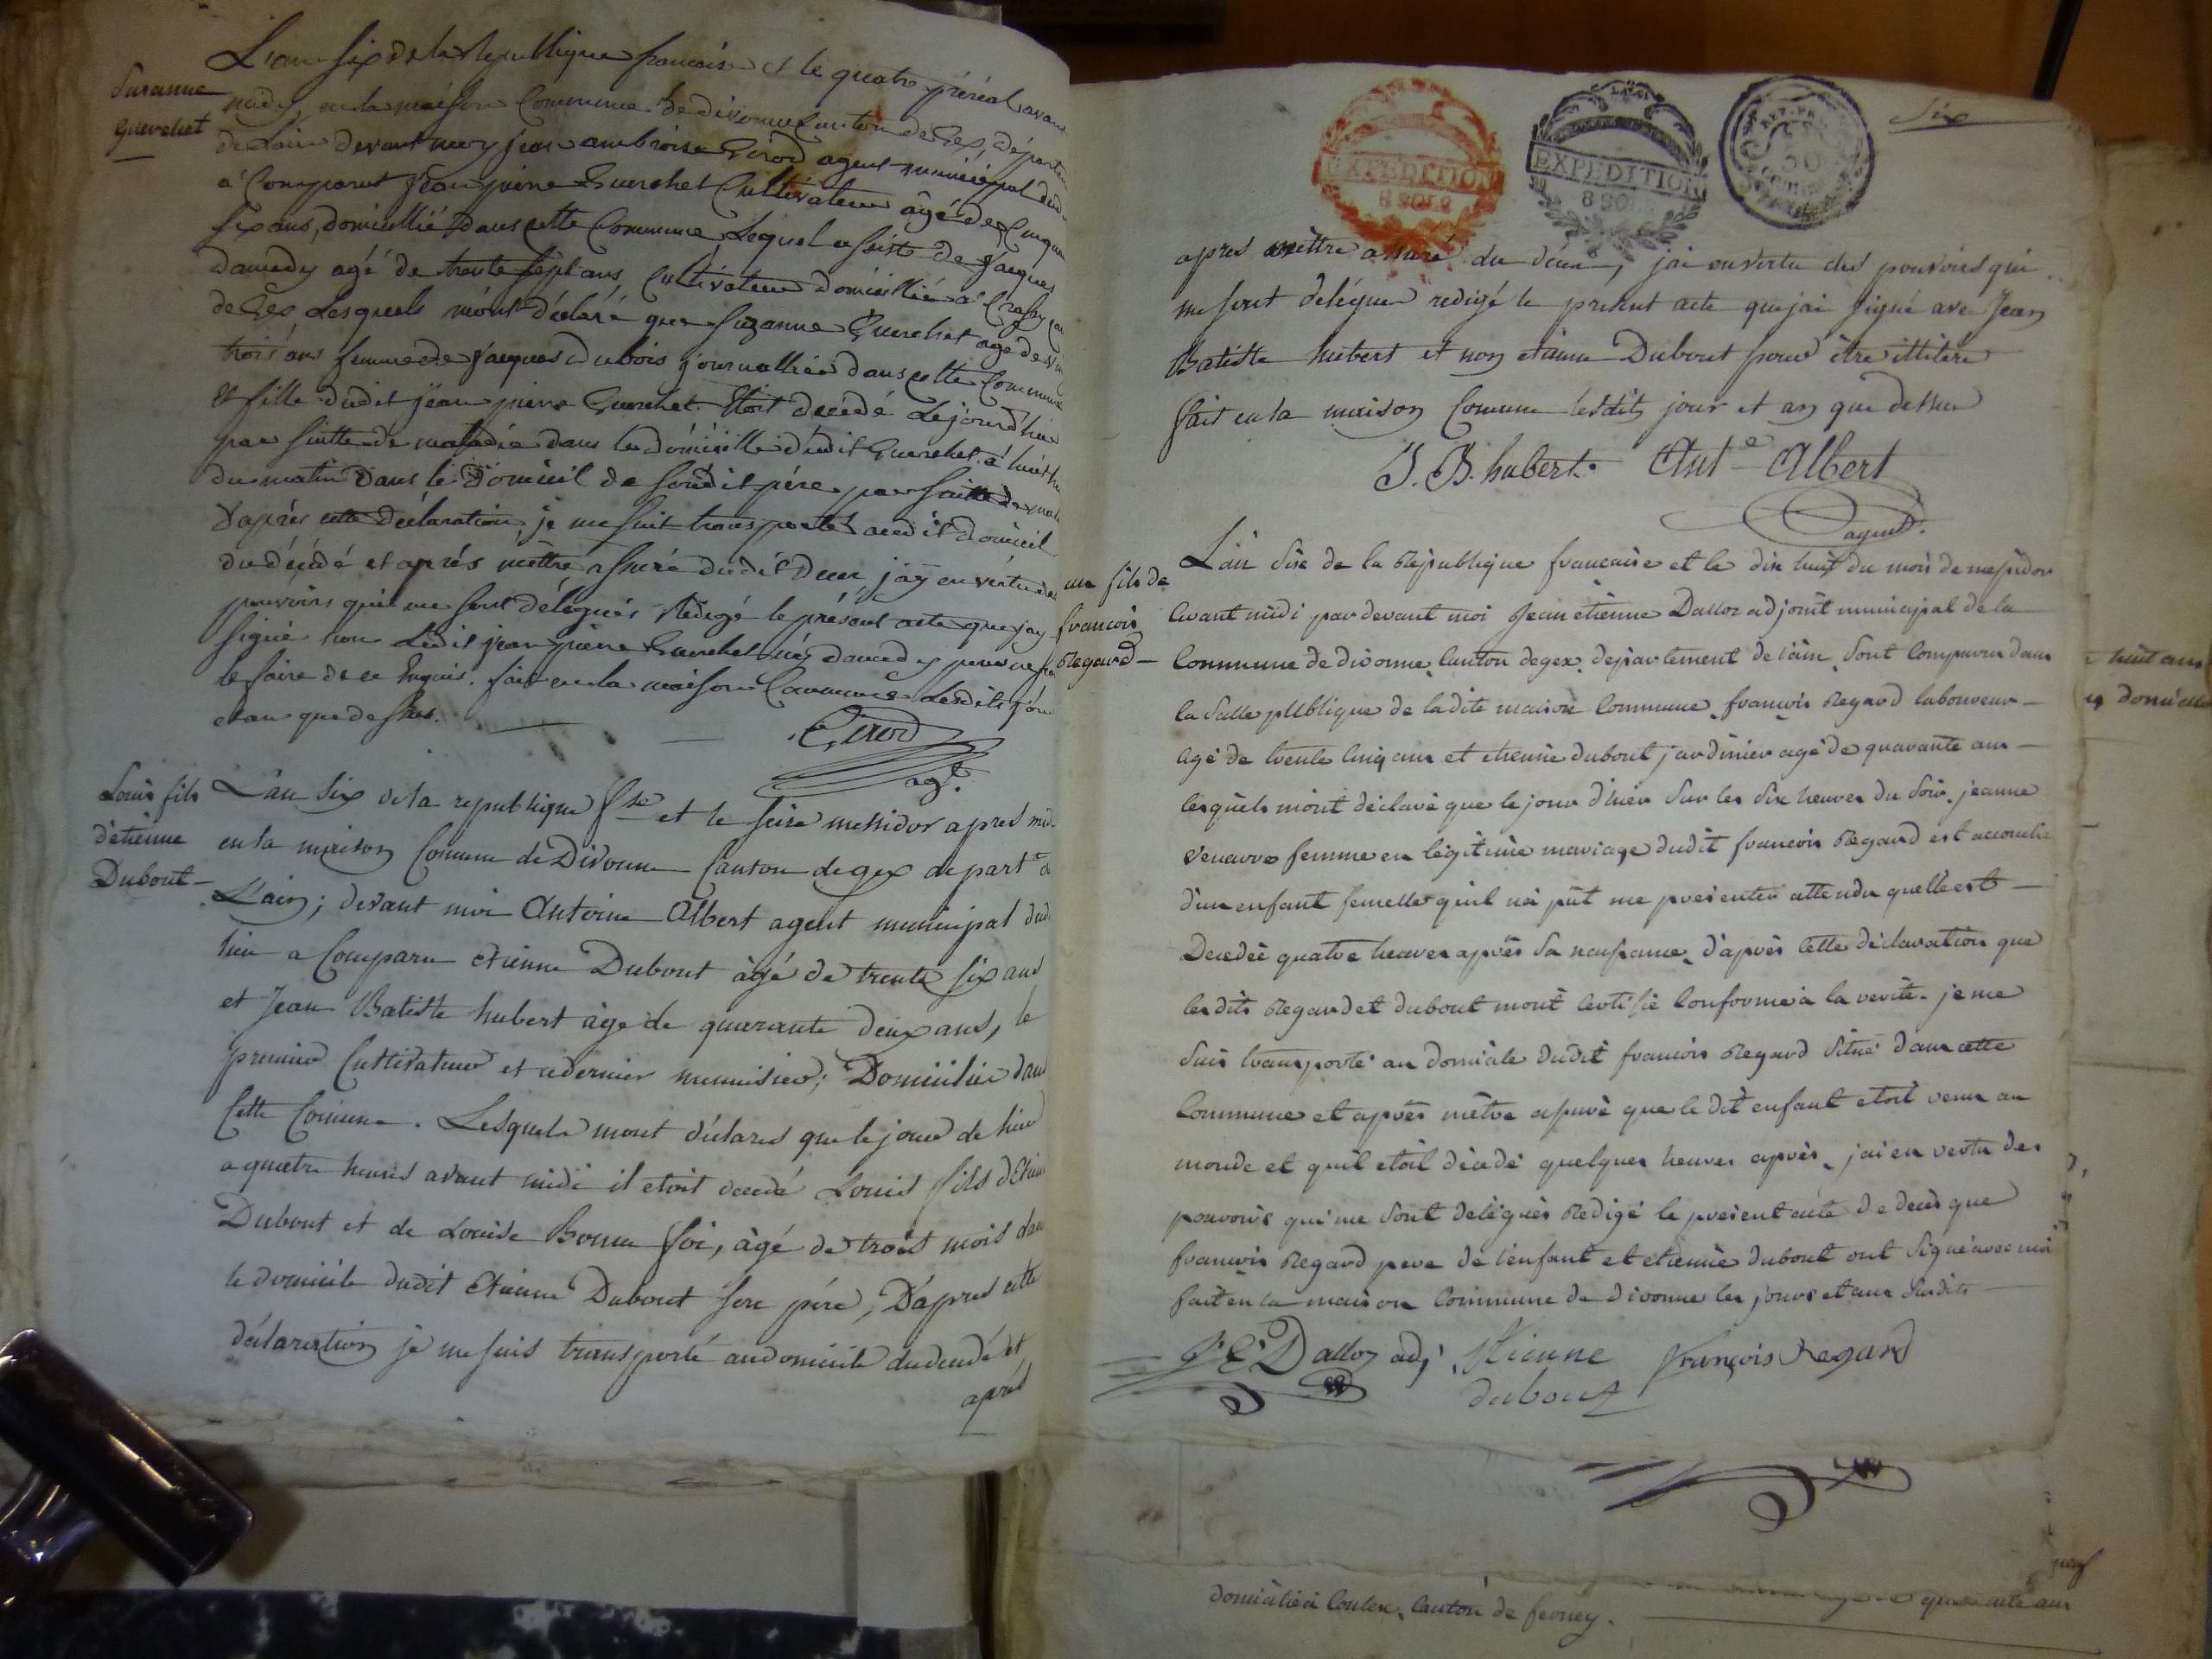 Suzanne
Guerchet
L'an six de la Republique francaise et le quatre préréal avant
midy, en la maison Commune de divonne Canton de Gex, départem
de Lain devant moy jean ambroise Girod agent municipal dud
a Comparut jean pierre Guerchet Cultivateur agé de Cinqua
six ans, domicillié dans cette Commune, Lequel assisté de jacques
damedy agé de trente sept ans, Cultivateur domicillié a Crassy, can
de Gex Lesquels m'ont déclaré que Suzanne Guerchet agé de vin
trois ans femme de jacques dubois journallier dans cette Commune
& fille dudit jean pierre Guerchet. Etoit decédé Lejourd'hui
par suitte de maladie dans le domicille dudit Guerchet à huit h
du matin dans le domicil de soudit pére par suitte de mala
D'aprés cette déclaration je me suit transporté audit domicil
du décédé et aprés mêttre assuré dudit Decez, j'ay en vértu des
pouvoirs qui me sont délégués Redigé le présent acte que jay
signé non Ledit jean pierre Guerchet n'y damedy pour ne sca
le faire de ce Enquis. fait en la maison Commune Lesdits jou
et an que dessus.
Girod
agt.
Louis fils
d'etienne
Dubout
L'an six de la republique fse et le seise messidor apres mid
en la maison Comune de Divonne Canton de gex depart.t de
L'ain; devant moi Antoine Albert agent municipal dud
lieu a Comparu etienne Dubout âgé de trente six ans
et Jean Batiste hubert âgé de quarante deux ans, le
premier Cultivateur et cedernier menuisier; Domicilié dans
Cette Comune. Lesquels mont déclarés que le jour de hier
a quatre heures avant midi il etoit decedé Louis fils d'Etien
Dubout et de Louise Bonne foi, âgé de trois mois dans
le domicile dudit etienne Dubout son pére, D'apres cette
déclaration je me suis transporté audomicile dudecedé et
aprés
Six
EXPEDITION
8 SOLS
EXPEDITION
8 SOLS
apres mêttre assuré du décès, j'ai en vertu des pouvoirs qui
me sont delégues redigé le présent acte que jai signé avec Jean
Batiste hubert et non etienne Dubout pour être illitéré
fait en la maison Comune lesdits jour et an que dessus
J. B. hubert. Ant.e Albert
agent.
un fils de
francois
Regard
L'an Six de la République francaise et le dix huit du mois de messidor
avant midi par devant moi Jean etienne Dalloz adjoint municipal de la
Commune de divonne canton de gex, département de l'ain, sont Comparus dans
la Salle publique de ladite maison Commune, francois Regard laboureur
agé de trente cinq ans et etienne dubout jardinier agé de quarante ans
lesquels m'ont déclaré que le jour d'hier sur les Six heures du Soir, jeanne
femme en légitime mariage dudit francois Regard est accouchée
d'un enfant femelle quil na put me presenter attendu quelle est
Decedée quatre heures après Sa naissance, d'après cette déclaration que
les dits Regard et dubout m'ont certifié Conforme à la verité. je me
Suis transporté au domicile dudit francois Regard situé dans cette
Commune et après m'être assuré que le dit enfant etoit venu au
monde et quil etoit décédé quelques heures après, j'ai en vertu des
pouvoirs qui me Sont delégués Redigé le present acte de deces que
francois Regard pere de l'enfant et etienne dubout ont Signé avec moi
fait en la maison Commune de divonne les jours et ans Susdits
J. E. Dalloz adj. Etienne dubout François Regard
huit ans
domicilié
neuf
quarante ans
domicilié à Coulex, Canton de ferney.